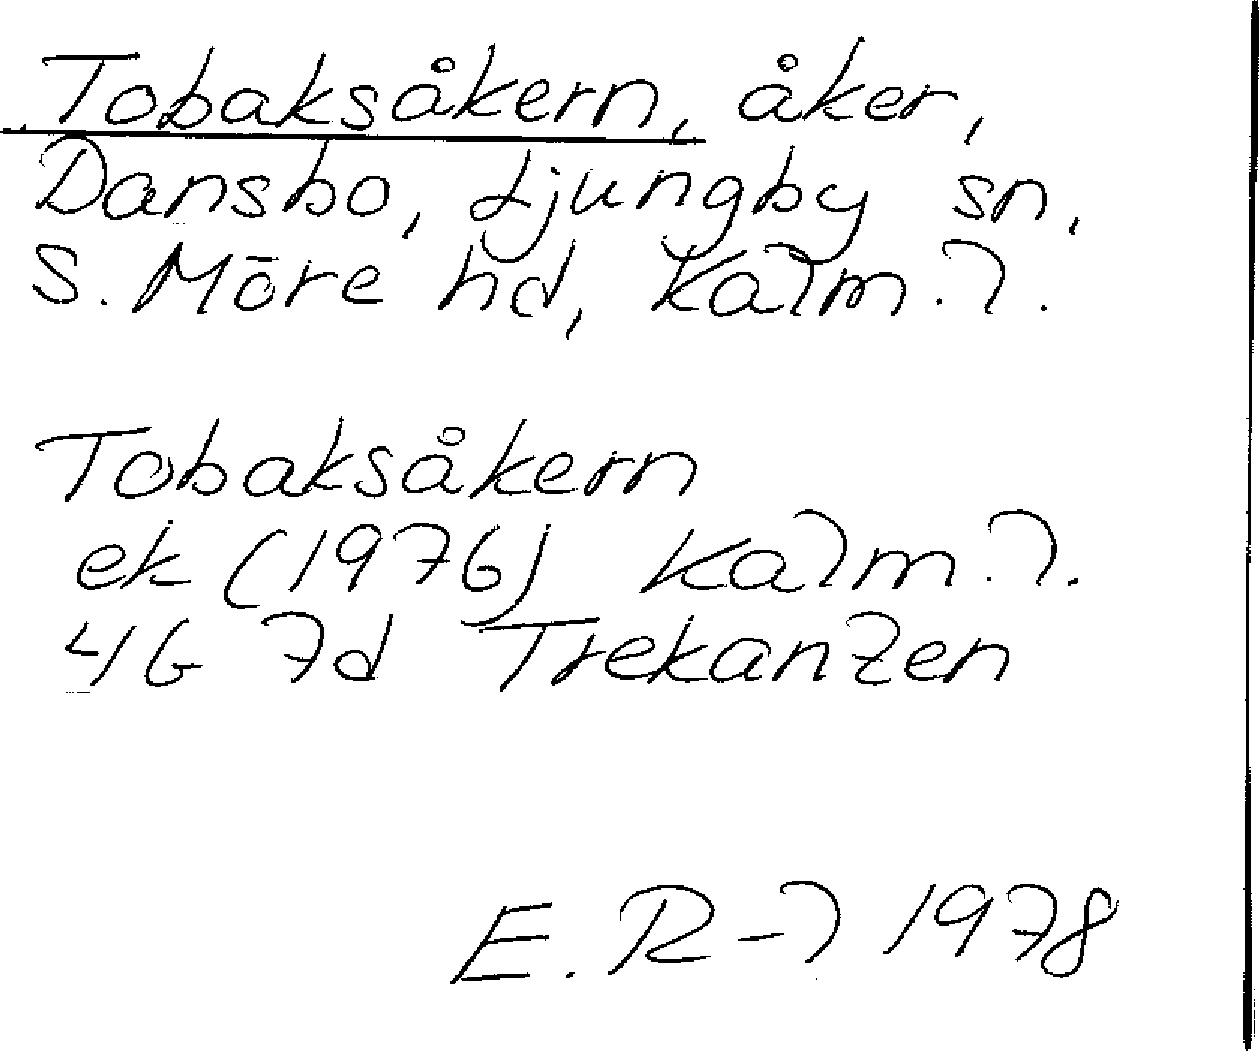 Tobaksåkern, åker,
Dansbo, Ljungby sn,
S. Möre hd, Kalm. l.
Tobaksåkern
ek (1976) Kalm. l.
4G 7d Trekanten
E. R-l 1978